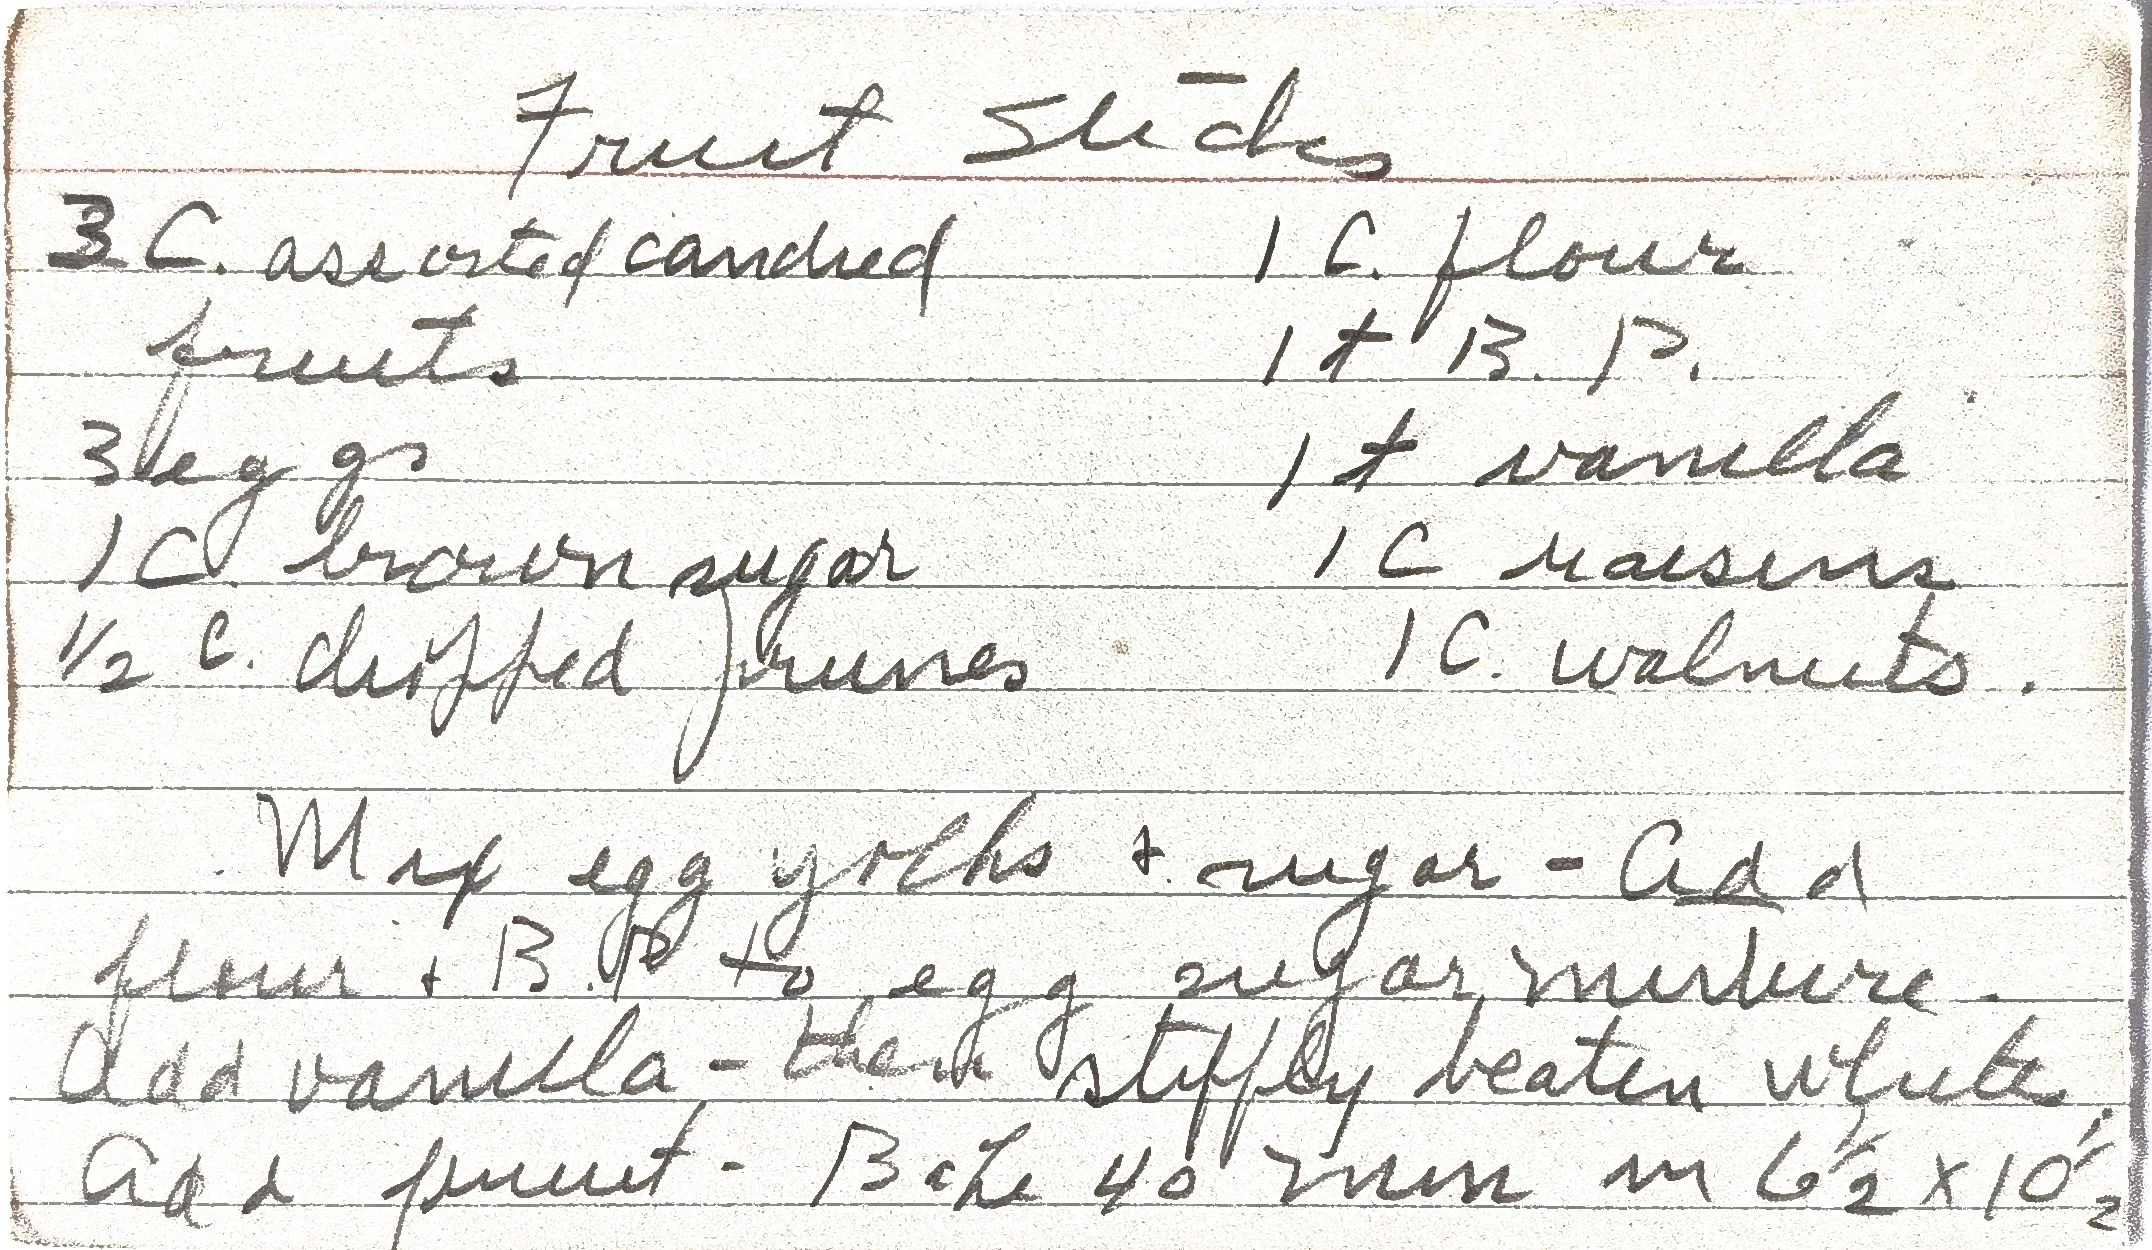 Fruit Sticks
3 C. assorted candied 1 C. flour
fruits 1 t B. P.
3 eggs 1 t vanilla
1 C. brown sugar 1 C raisins
1/2 C. chipped prunes 1 C. walnuts.
Mix egg yolks + sugar - Add
flour + B.P to egg sugar mixture.
Add vanilla - then stiffly beaten white.
Add fruit - Bake 40 min in 6 1/2 x 10 1/2